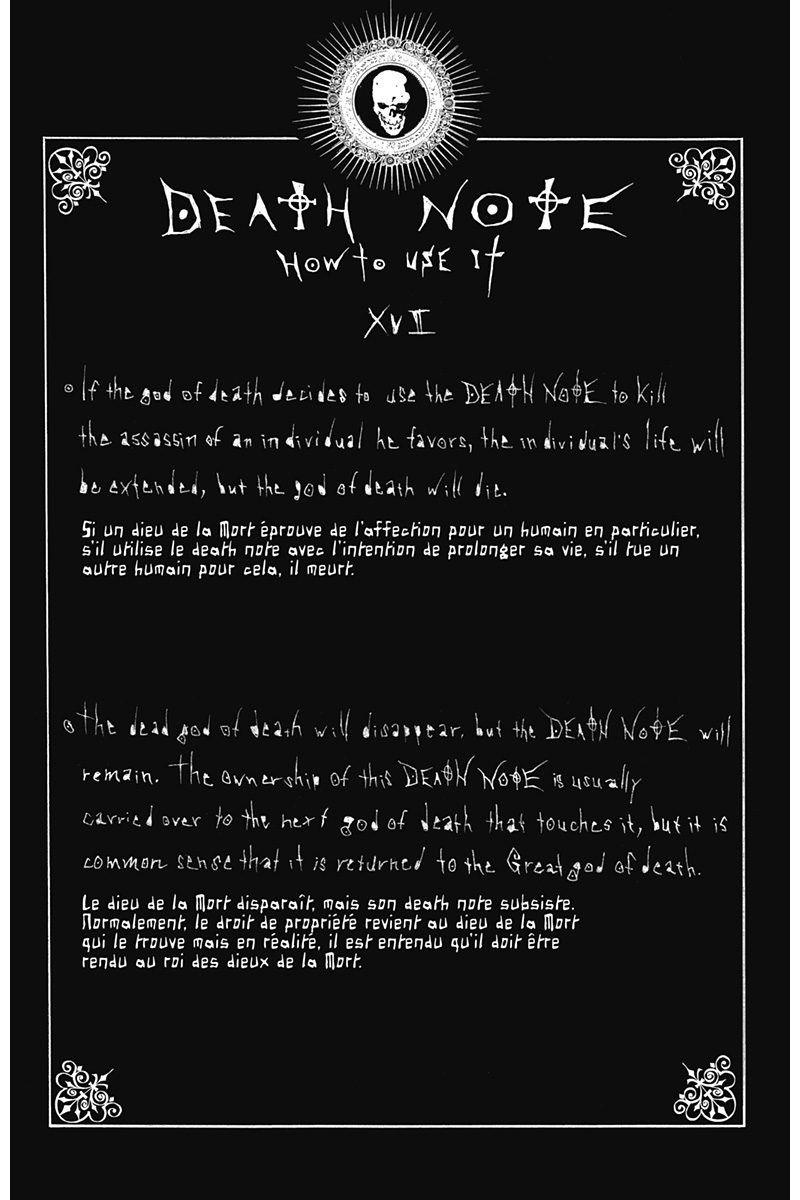 DEATH NOTE
How to use it
XVII
If the god of death decides to use the DEATH NOTE to kill
the assassin of an individual he favors, the individual's life will
be extended, but the god of death will die.
Si un dieu de la Mort éprouve de l'affection pour un humain en particulier,
s'il utilise le death note avec l'intention de prolonger sa vie, s'il tue un
autre humain pour cela, il meurt.
The dead god of death will disappear, but the DEATH NOTE will
remain. The ownership of this DEATH NOTE is usually
carried over to the next god of death that touches it, but it is
common sense that it is returned to the Great god of death.
Le dieu de la Mort disparaît, mais son death note subsiste.
Normalement, le droit de propriété revient au dieu de la Mort
qui le trouve mais en réalité, il est entendu qu'il doit être
rendu au roi des dieux de la Mort.